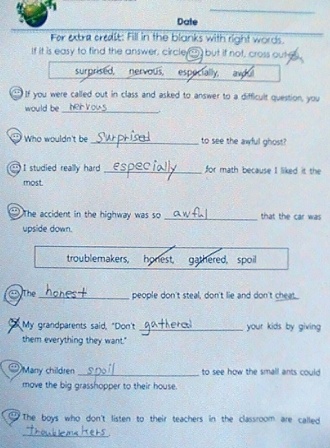 Date
For extra credit: Fill in the blanks with right words.
If it is easy to find the answer, circle but if not, cross out
surprised, nervous, especially, awful
If you were called out in class and asked to answer to a difficult question, you
would be nervous.
Who wouldn't be surprised to see the awful ghost?
I studied really hard especially for math because I liked it the
most.
The accident in the highway was so awful that the car was
upside down.
troublemakers, honest, gathered, spoil
The honest people don't steal, don't lie and don't cheat.
My grandparents said, "Don't gathered your kids by giving
them everything they want."
Many children spoil to see how the small ants could
move the big grasshopper to their house.
The boys who don't listen to their teachers in the classroom are called
troublemakers.